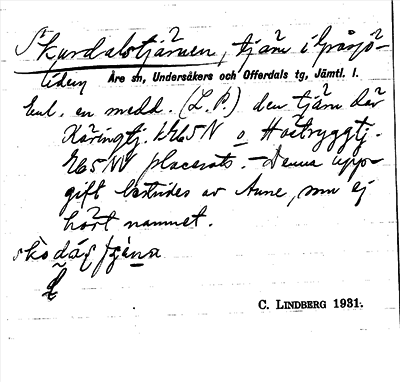 Skurdalstjärnen, tjärn i Gråsjö-
liden Åre sn, Undersåkers och Offerdals tg, Jämtl. l.
Enl. en medd. (L.P.) den tjärn där
Käringtj. 1765N o Höstryggtj.
765NV placerats. - Denna upp-
gift bestrides av Aune, som ej
hört namnet.
C. LINDBERG 1931.